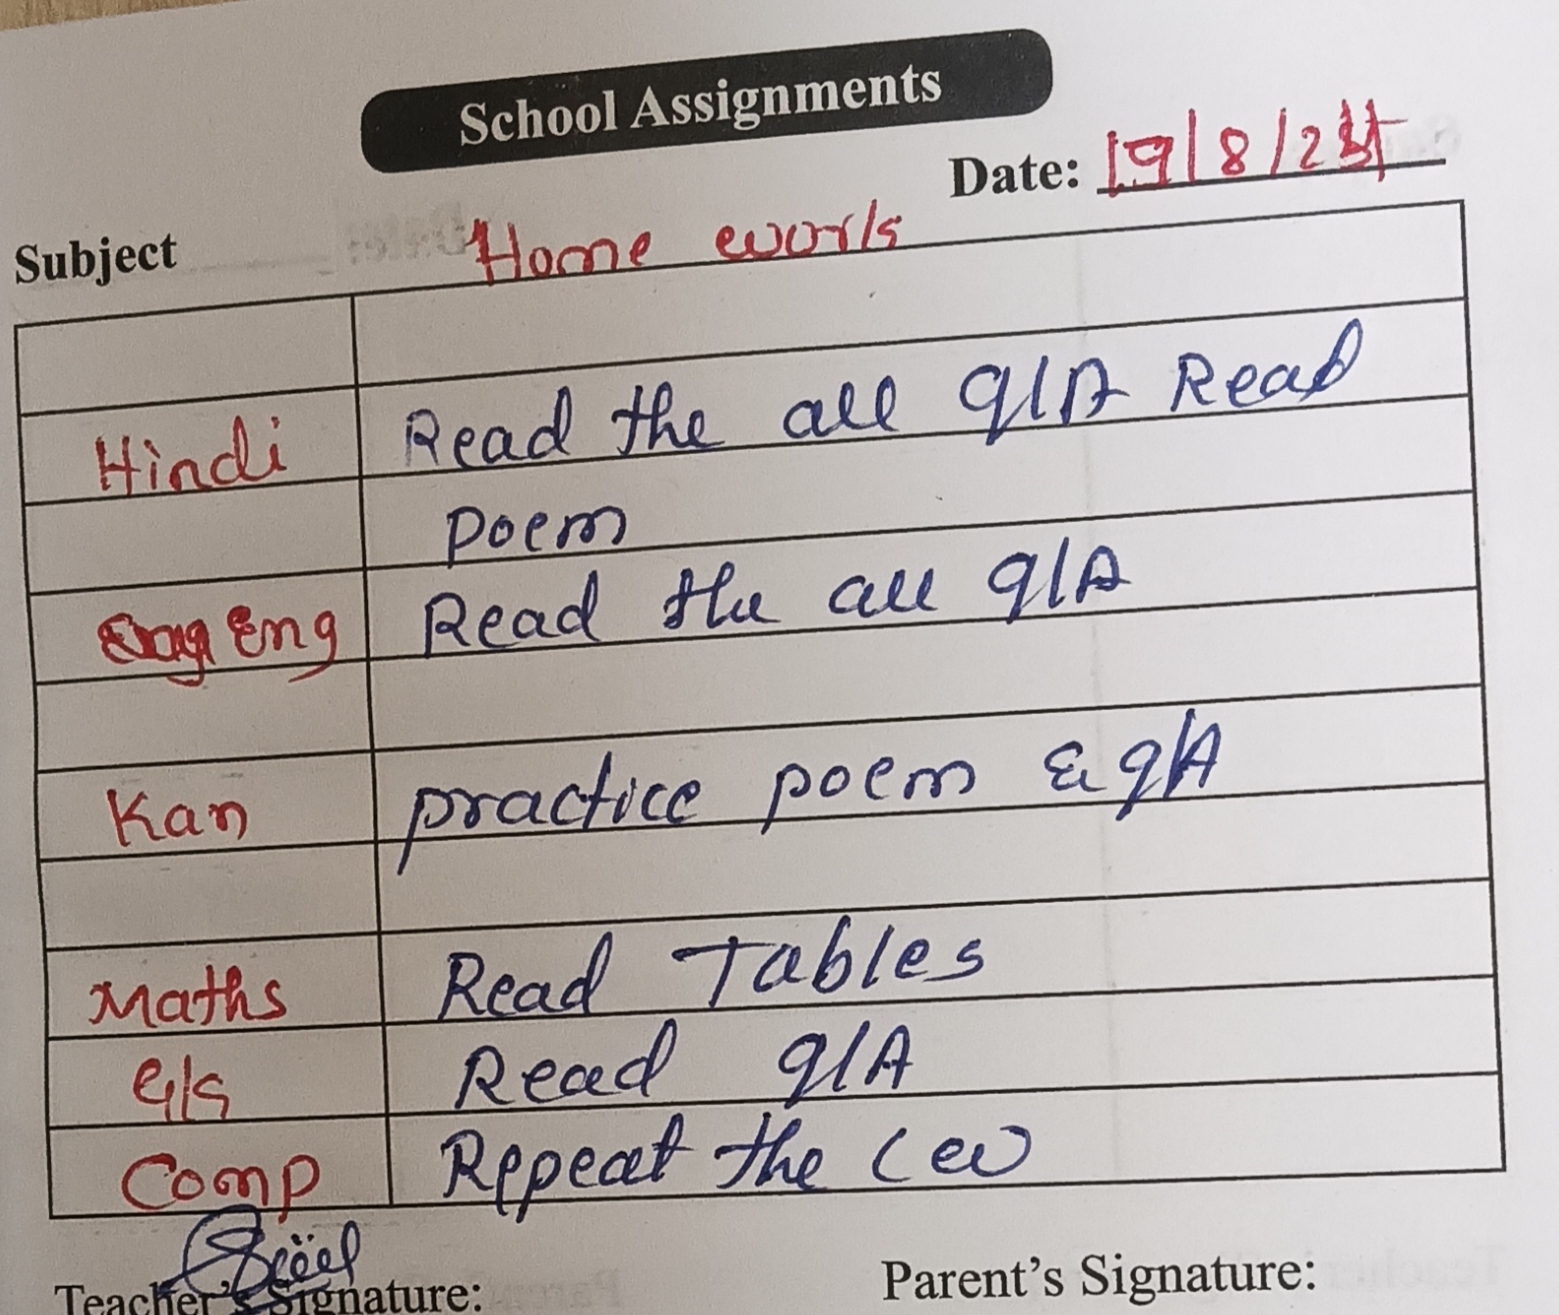 School Assignments
Date: 19/8/25
Subject Home work
Hindi Read the all q/A Read
poem
Eng Read the all q/A
Kan practice poem & q/A
Maths Read Tables
G/S Read q/A
Comp Repeat the cw
Teacher's Signature: Parent's Signature: